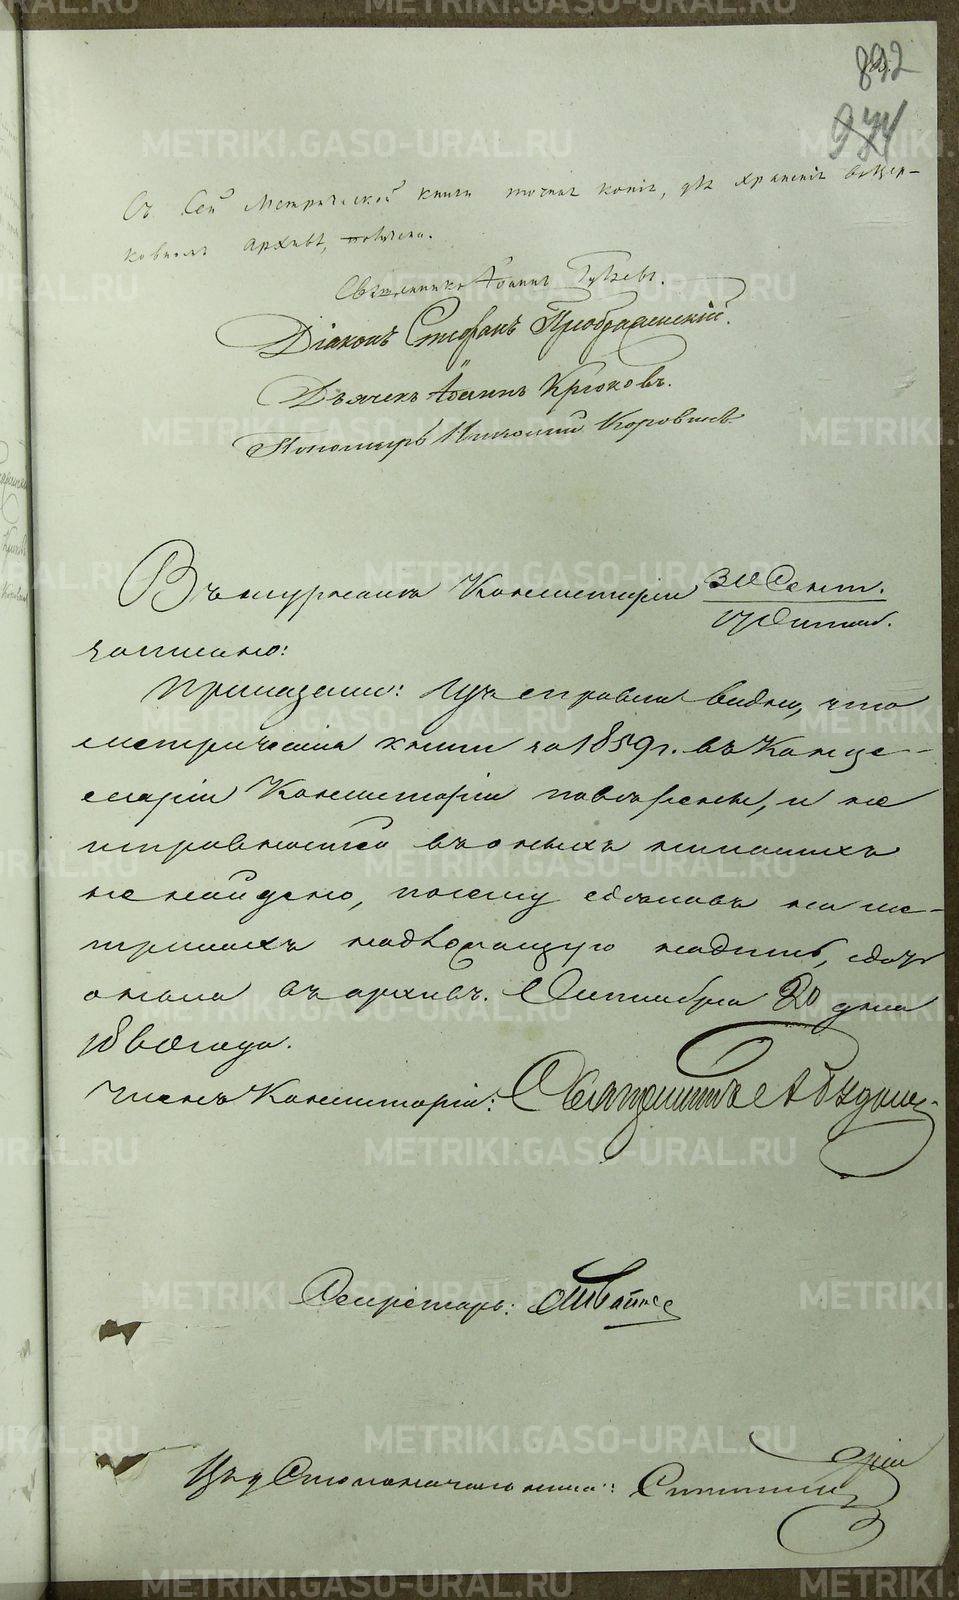 892
974
Съ сей Метрической книги точная копія, для храненія въ цер-
ковномъ архивѣ, получена.
Священникъ Іоаннъ
Діаконъ Стефанъ Преображенскій.
Дьячекъ Іоаннъ Крюковъ.
Пономарь Николай Коровинъ
Въ журналѣ Консисторіи 30 Сент.
17 Октяб.
записано:
Приказали: Изъ справки видно, что
метрическія книги за 1859 г. въ Канце-
ляріи Консисторіи повѣрены, и не
исправностей въ оныхъ никакихъ
не найдено, посему сдѣлавъ на ме-
трикахъ надлежащую надпись, сдать
оныя въ архивъ. Октября 20 дня
1860 года.
Членъ Консисторіи: Священникъ
Секретарь:
Столоначальника:
METRIKI.GASO-URAL.RU